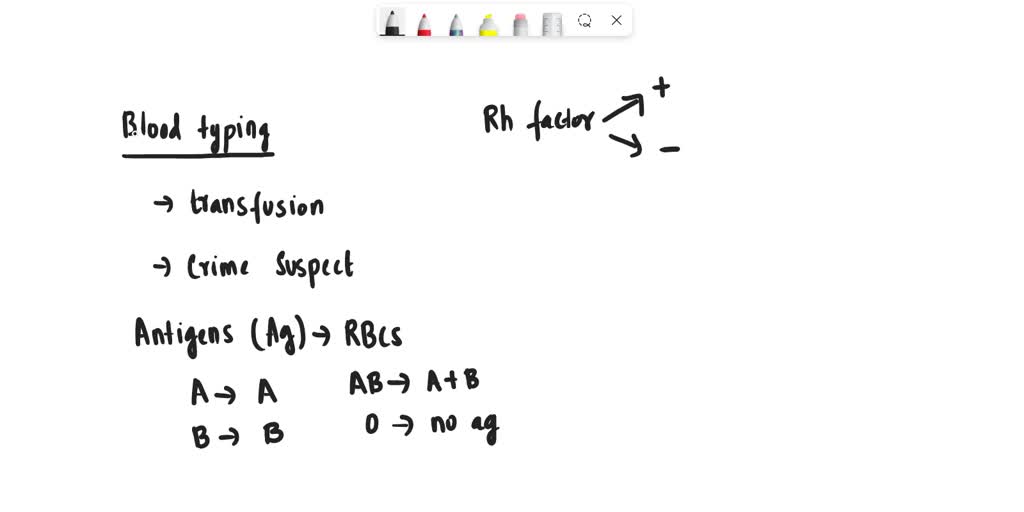 Blood typing
→ transfusion
→ Crime Suspect
Antigens (Ag) → RBCs
A → A
B → B
AB → A + B
O → no ag
Rh factor
+
-